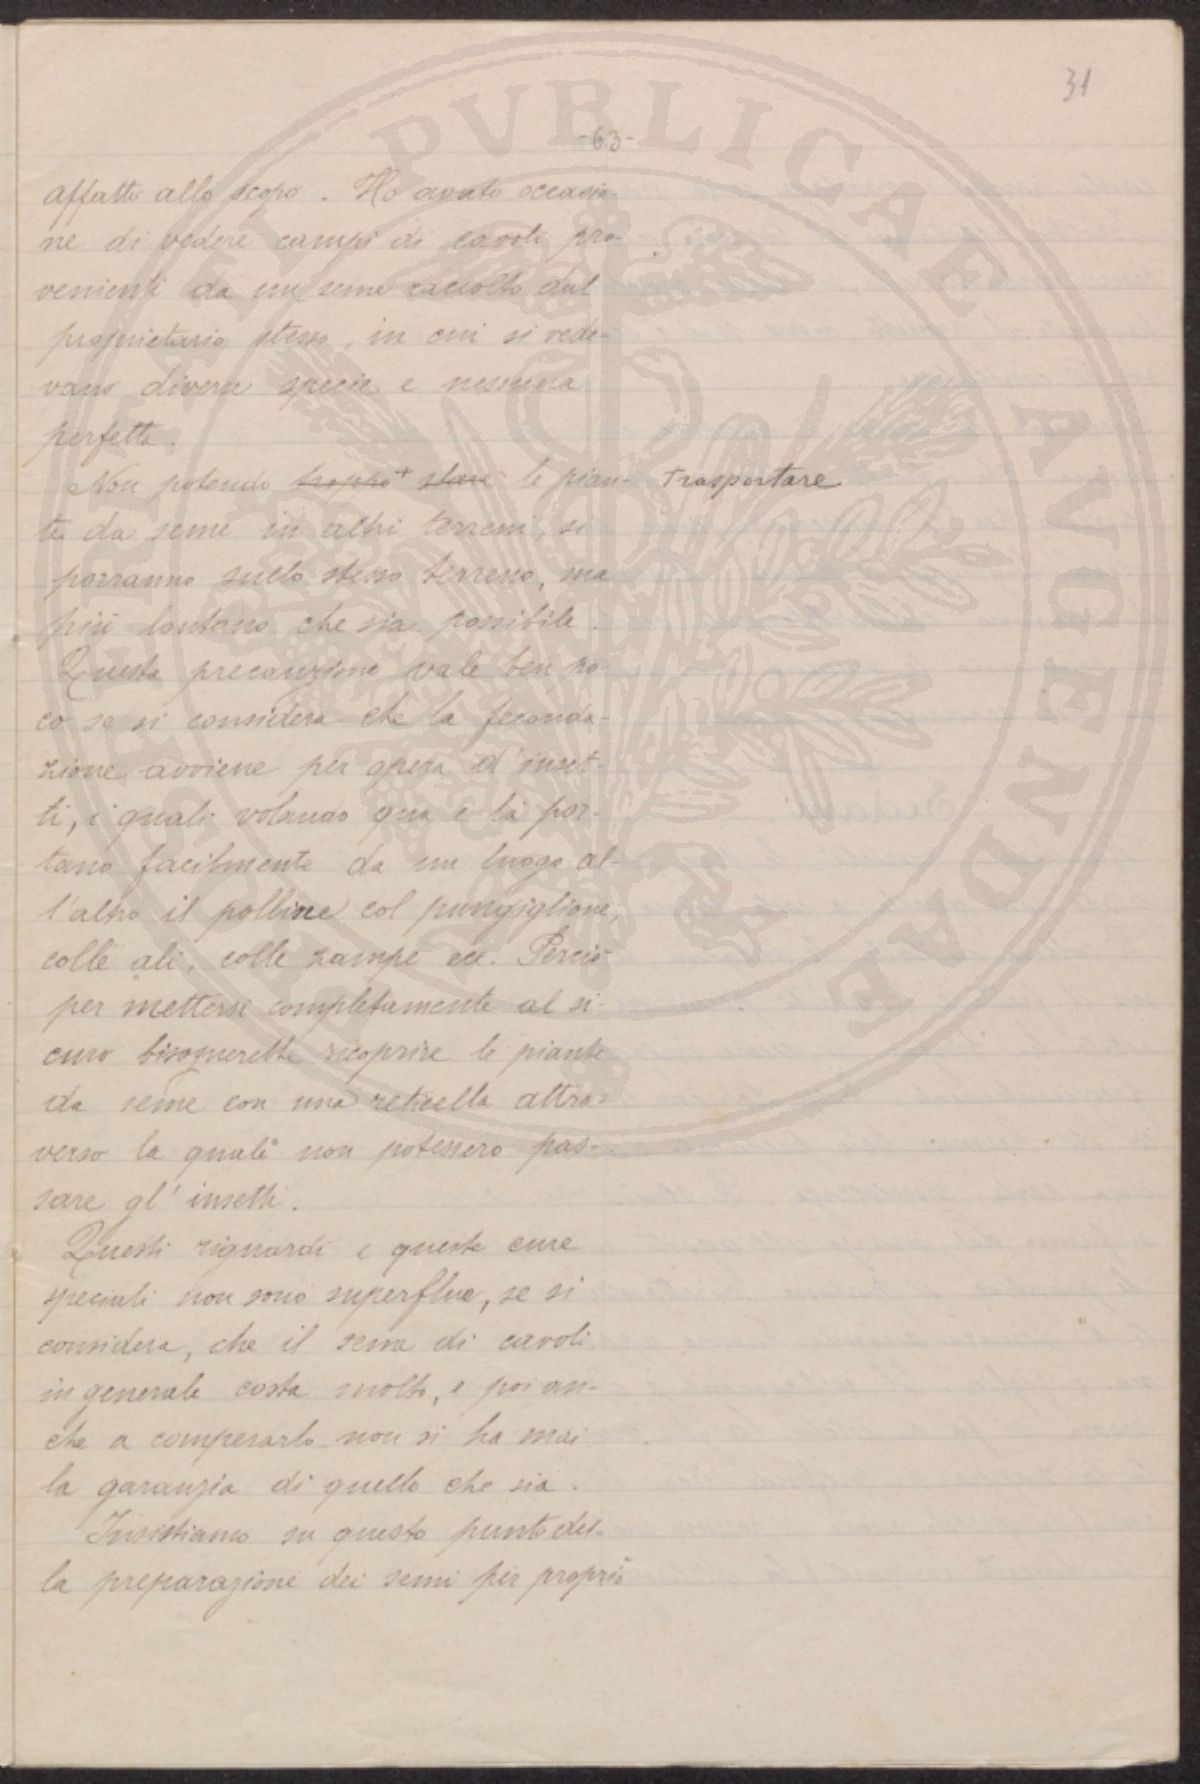 31
-63-
affatto allo scopo. Ho avuto occasio-
ne di vedere campi di cavoli pro-
venienti da un seme raccolto dal
proprietario stesso, in cui si vede-
vano diverse specie e nessuna
perfetta.
Non potendo troppo + stare le pian- trasportare
te da seme in altri terreni, si
porranno sullo stesso terreno, ma
più lontano che sia possibile.
Questa precauzione vale ben po-
co se si considera che la feconda-
zione avviene per opera d'inset-
ti, i quali volando qua e là por-
tano facilmente da un luogo al-
l'altro il polline col pungiglione,
colle ali, colle zampe ecc. Perciò
per mettersi completamente al si-
curo bisognerebbe ricoprire le piante
da seme con una reticella attra-
verso la quale non potessero pas-
sare gl'insetti.
Questi riguardi e queste cure
speciali non sono superflue, se si
considera, che il seme di cavoli
in generale costa molto, e poi an-
che a comperarlo non si ha mai
la garanzia di quello che sia.
Insistiamo su questo punto del-
la preparazione dei semi per proprio
PVBLICAE AVGENDAE